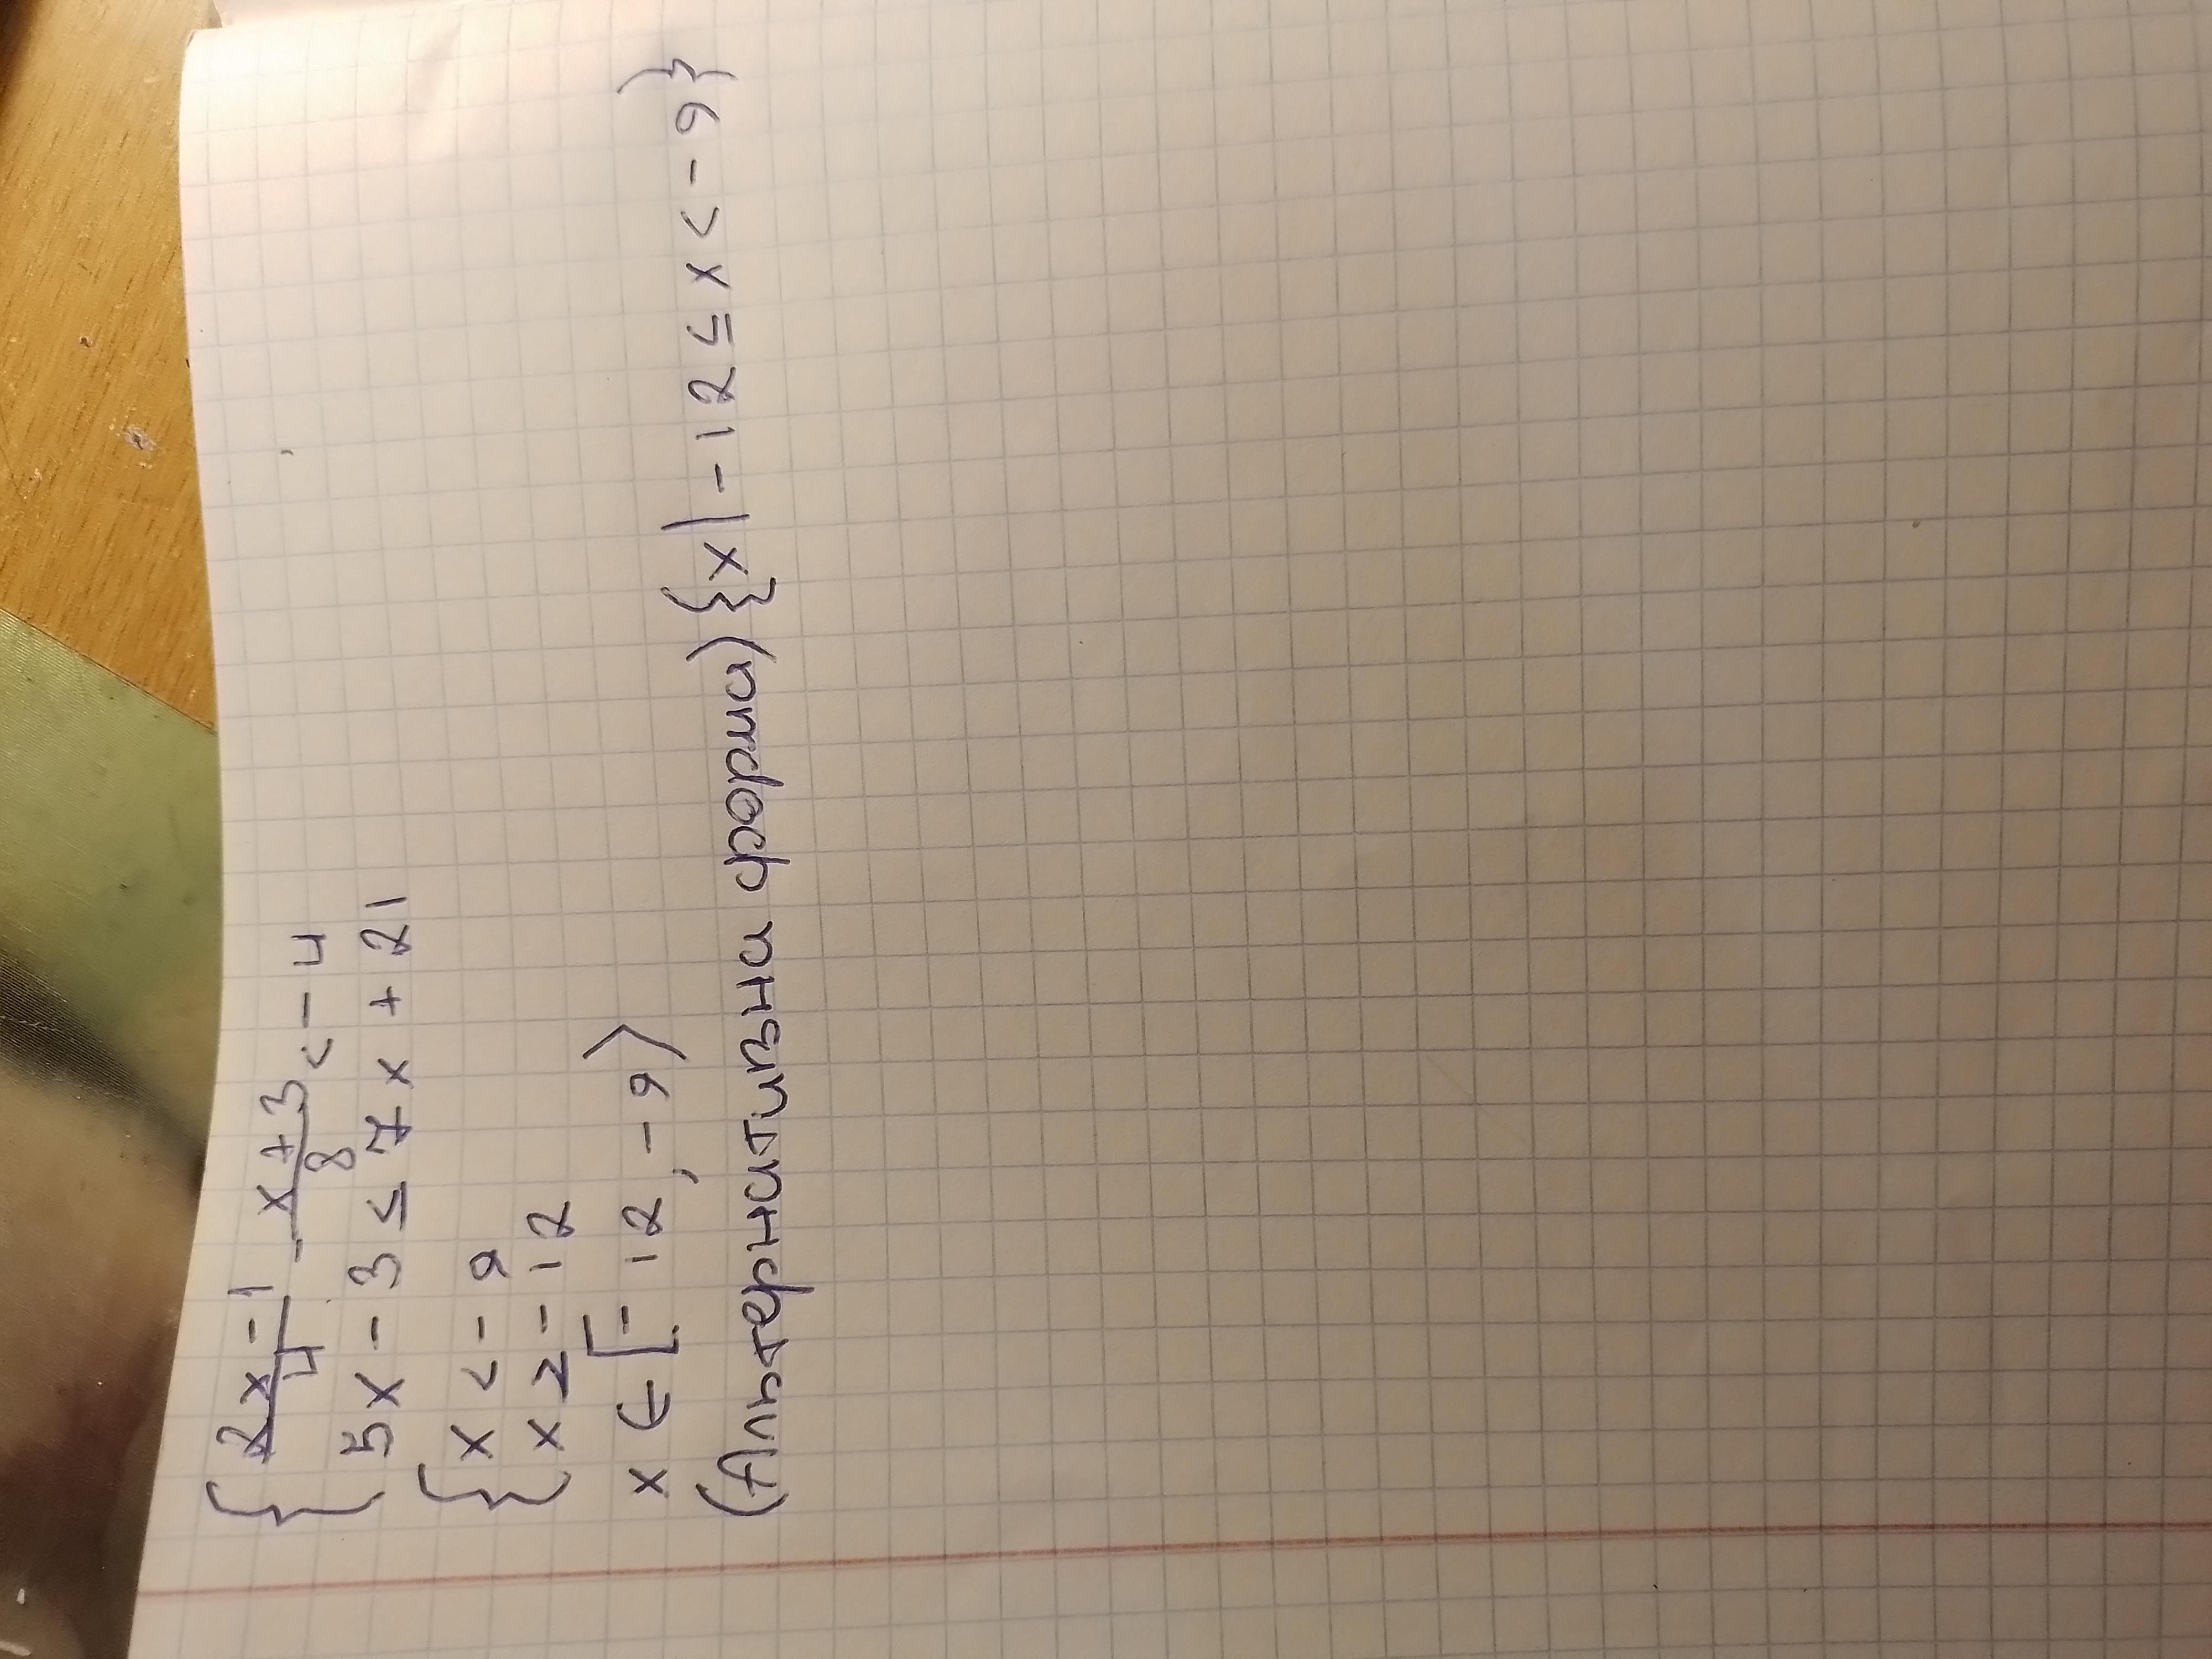 { 2x-1/4 - x+3/8 < -4
5x - 3 ≤ 7x + 21
{ x < -9
x ≥ -12
x ∈ [-12, -9⟩
(Альтернативна форма) {x|-12 ≤ x < -9}